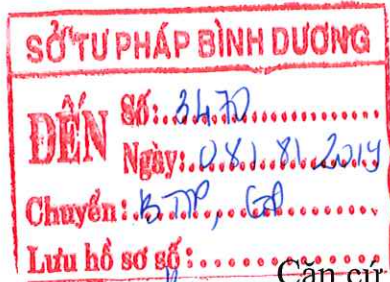 SỞ TƯ PHÁP BÌNH DƯƠNG
ĐẾN
Số: 3470
Ngày: 08/8/2019
Chuyển: BTTP,
Lưu hồ sơ số:
Căn cứ